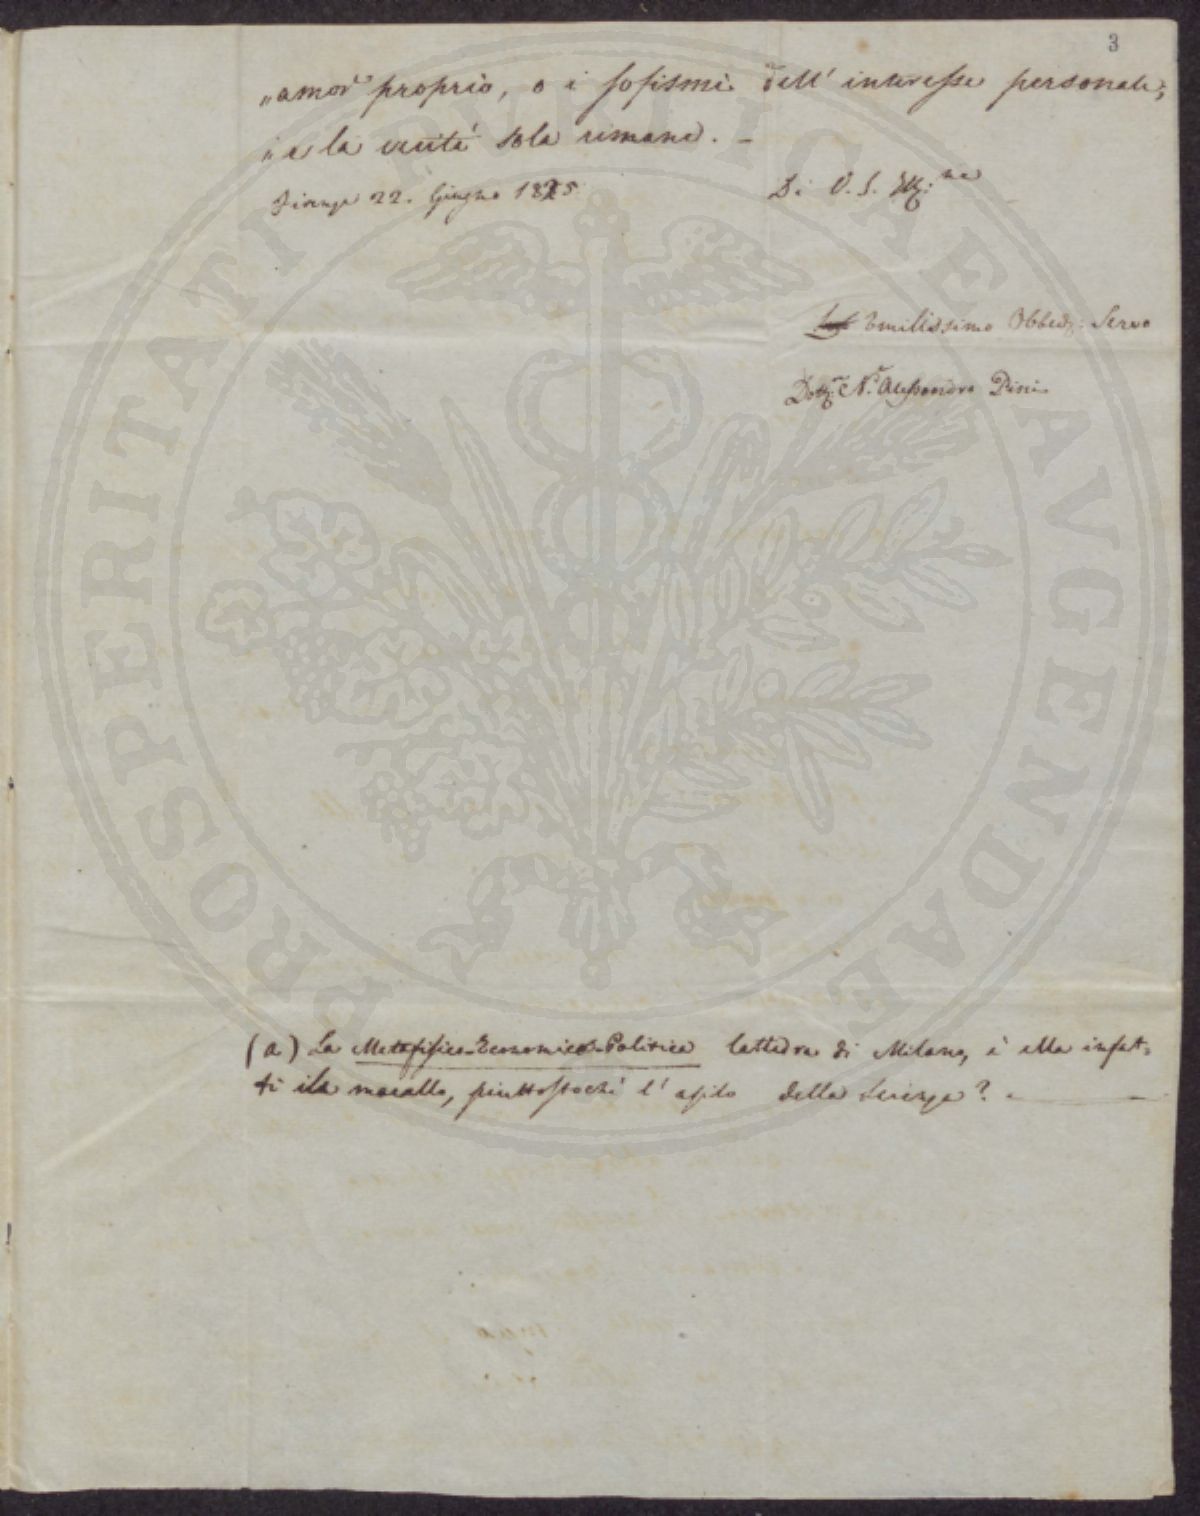 3
„amor proprio, o i sofismi dell' interesse personale;
„e la verità sola rimane. –
Firenze 22. Giugno 1825
Di V. S. Ill:ma
Umilissimo Obbedz: Servo
Dott:re N.r Alessandro Pini
(a) La Metafisico-Economico-Politica Cattedra di Milano, è ella infat-
ti il macello, piuttostochè l' asilo della Scienza? –
PROSPERITATI PVBLICAE AVGENDAE